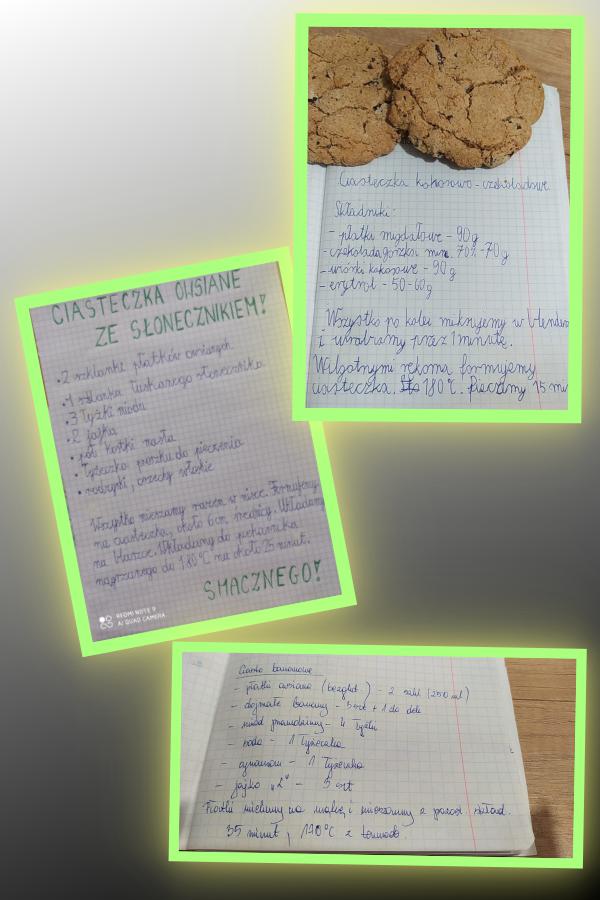 Ciasteczka kokosowo-czekoladowe
Składniki:
- płatki migdałowe - 90g
- czekolada gorzka min. 70% - 70g
- wiórki kokosowe - 90g
- erytrol - 50-60g
Wszystko po kolei miksujemy w blender
i urabiamy przez 1 minutę.
Wilgotnymi rękoma formujemy
ciasteczka. 180°C. pieczemy 15 min
CIASTECZKA OWSIANE
ZE SŁONECZNIKIEM!
• 2 szklanki płatków owsianych
• 1 szklanka łuskanego słonecznika
• 3 łyżki miodu
• 2 jajka
• pół kostki masła
• łyżeczka proszku do pieczenia
• rodzynki, orzechy włoskie
Wszystko mieszamy razem w misce. Formujemy
na ciasteczka, około 6cm średnicy. Układamy
na blaszce. Wkładamy do piekarnika
nagrzanego do 180°C na około 25 minut.
SMACZNEGO!
REDMI NOTE 9
AI QUAD CAMERA
Ciasto bananowe
- płatki owsiane (bezglut.) - 2 szkl (250 ml)
- dojrzałe banany - 3 szt + 1 do deko
- miód prawdziwy - 4 łyżki
- soda - 1 łyżeczka
- cynamon - 1 łyżeczka
- jajko "L" - 3 szt
Płatki mielimy na mąkę i mieszamy z pozost. składn.
35 minut, 170°C z termoob.